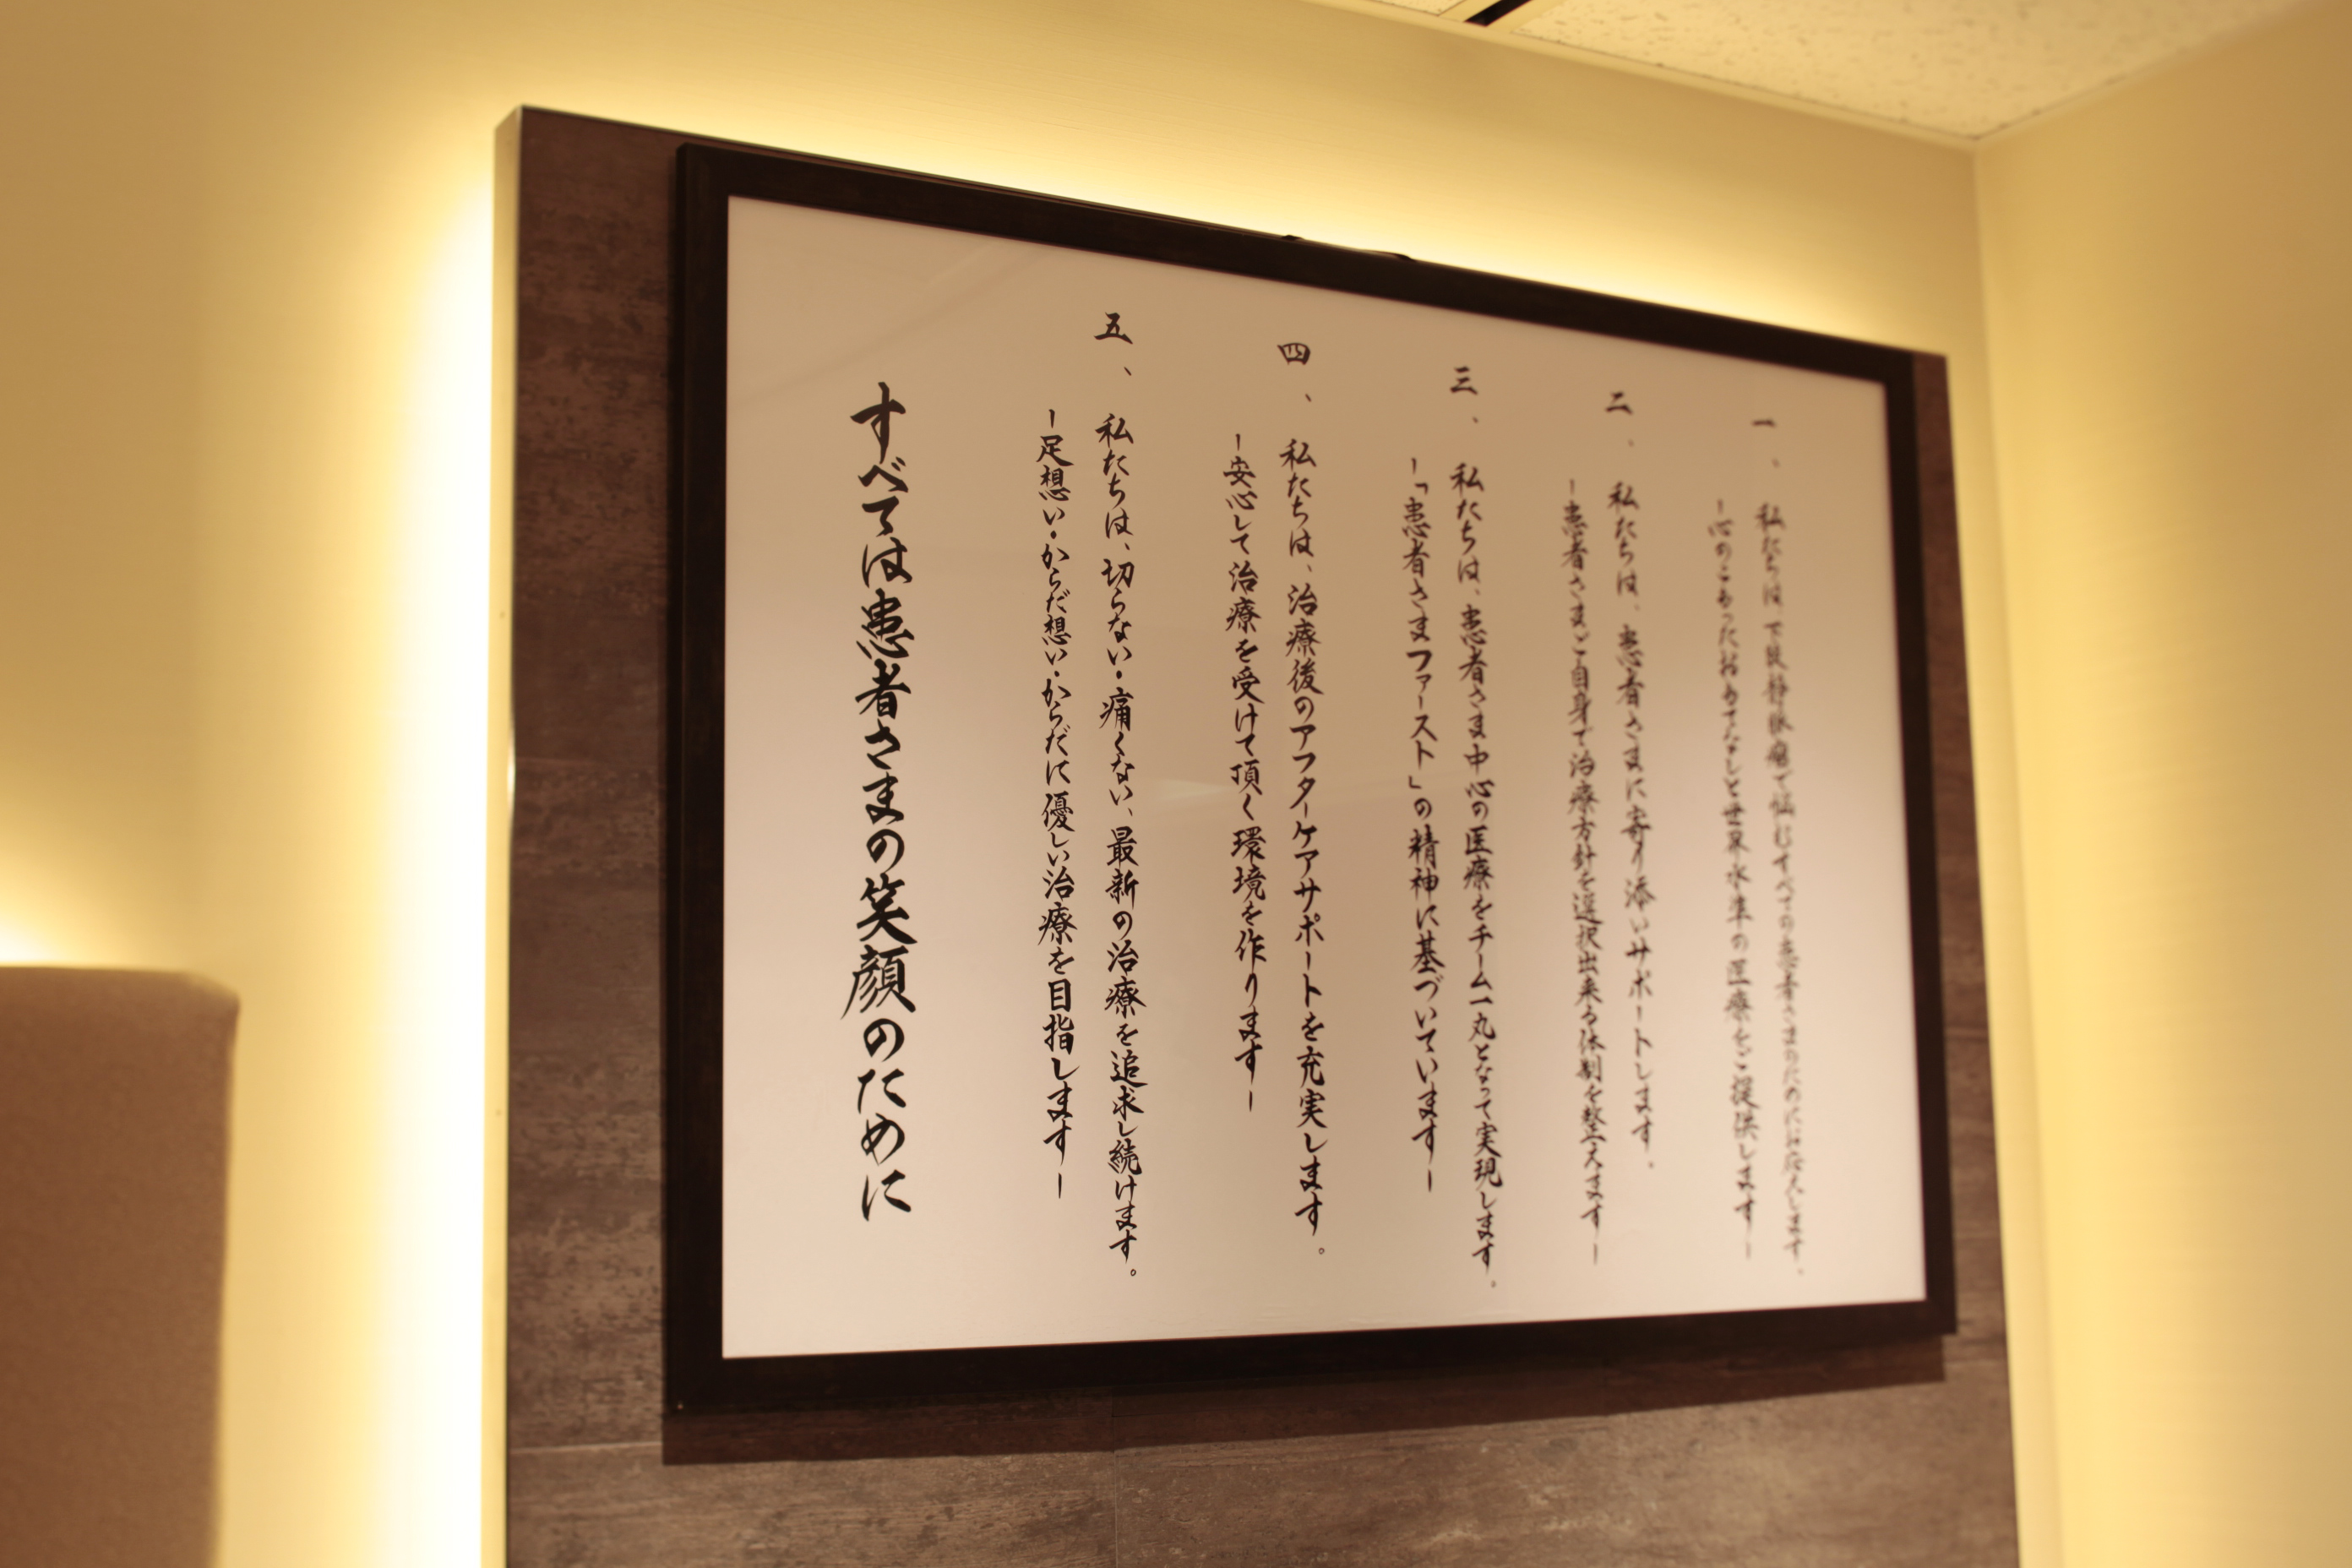 一、私たちは、下肢静脈瘤で悩むすべての患者さまのためにお応えします。
ー心のこもったおもてなしと世界水準の医療をご提供しますー
二、私たちは、患者さまに寄り添いサポートします。
ー患者さまご自身で治療方針を選択出来る体制を整えますー
三、私たちは、患者さま中心の医療をチーム一丸となって実現します。
ー「患者さまファースト」の精神に基づいていますー
四、私たちは、治療後のアフターケアサポートを充実します。
ー安心して治療を受けて頂く環境を作りますー
五、私たちは、切らない・痛くない、最新の治療を追求し続けます。
ー足想い・からだ想い・からだに優しい治療を目指しますー
すべては患者さまの笑顔のために